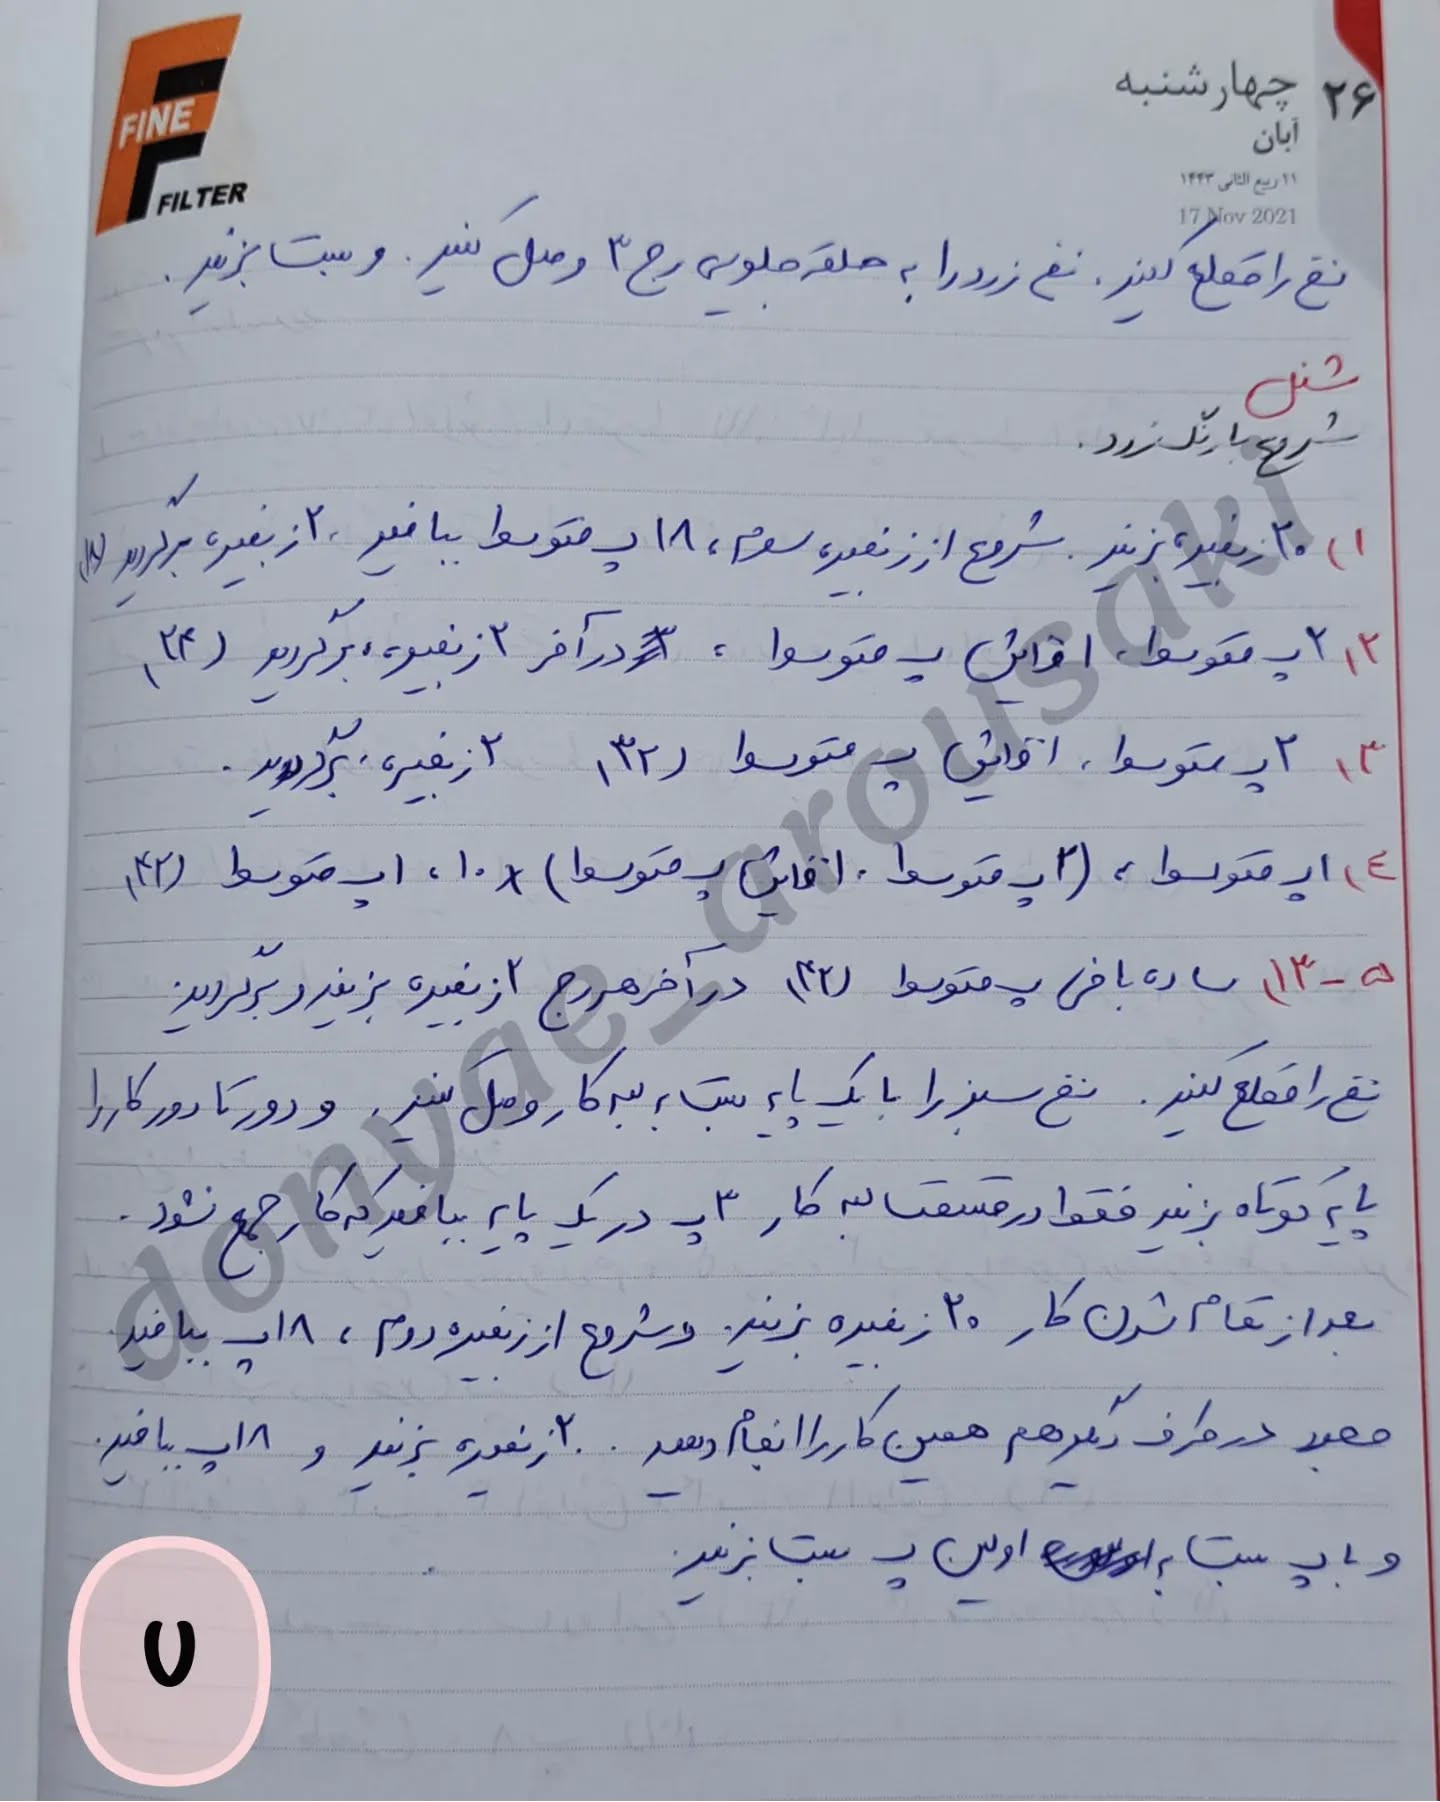 FINE
FILTER
۲۶
چهارشنبه
آبان
۱۱ ربیع الثانی ۱۴۴۳
17 Nov 2021
نخ را قطع کنید. نخ زرد را به حلقه جلویی رج ۳ وصل کنید. و بست بزنید.
شنل
شروع با رنگ زرد.
۱) ۲۰ زنجیره بزنید. شروع از زنجیره سوم، ۱۸ پ متوسط ببافید. ۲ زنجیره، برگردید (۱۸)
۲) ۲ پ متوسط، افزایش پ متوسط، در آخر ۲ زنجیره، برگردید (۲۴)
۳) ۲ پ متوسط، افزایش پ متوسط (۳۲) ۲ زنجیره، برگردید.
۴) ۱ پ متوسط، (۲ پ متوسط. افزایش پ متوسط) × ۱۰، ۱ پ متوسط (۴۲)
۵-۱۳) ساده بافی پ متوسط (۴۲) در آخر هر رج ۲ زنجیره بزنید و برگردید.
نخ را قطع کنید. نخ سبز را با یک پایه بست به لبه کار وصل کنید. و دور تا دور کار را
پایه کوتاه بزنید فقط در قسمت لبه کار ۳ پ در یک پایه ببافید که کار جمع نشود.
بعد از تمام شدن کار ۲۰ زنجیره بزنید. و شروع از زنجیره دوم، ۱۸ پ ببافید
مجدد در طرف دیگر هم همین کار را انجام دهید. ۲۰ زنجیره بزنید و ۱۸ پ ببافید.
و با پ بست به اولین پ بست بزنید.
donyae_arousaki
۷